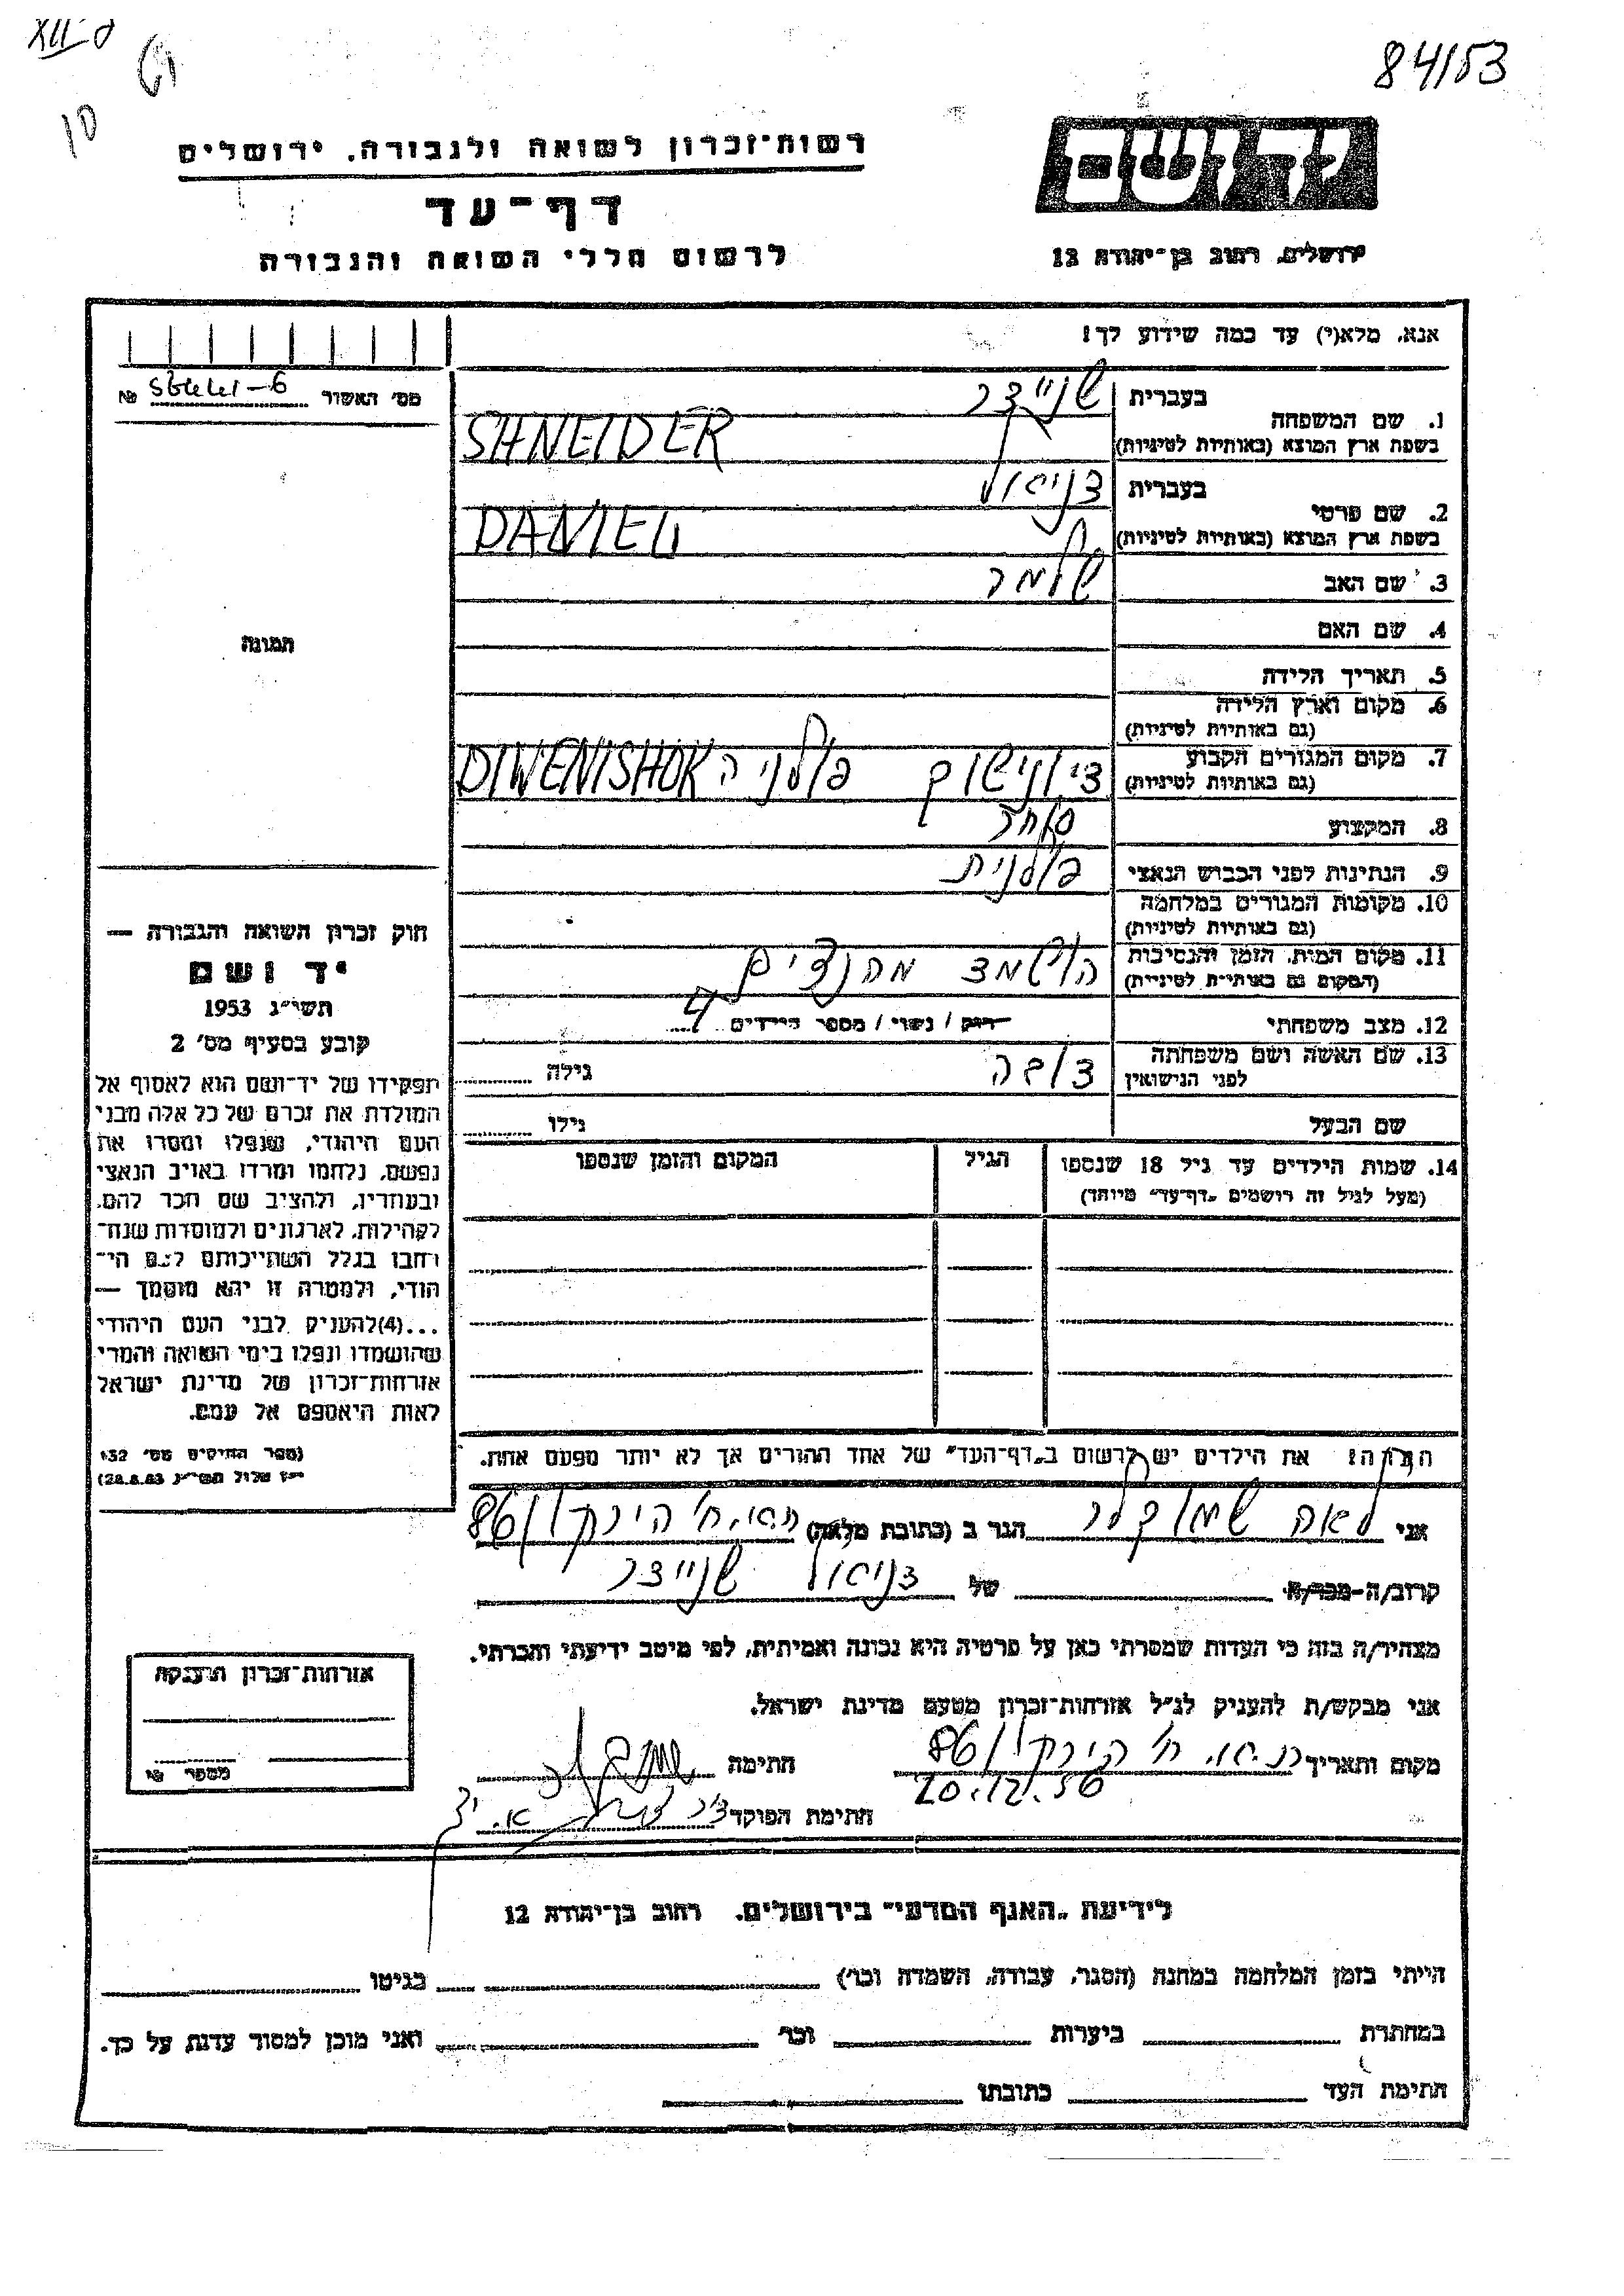 84153
XII-ס
יד ושם
רשות־זכרון לשואה ולגבורה, ירושלים
דף־עד
לרשום חללי השואה והגבורה
ירושלים, רחוב בן־יהודה 12
אנא, מלא(י) עד כמה שידוע לך!
מס׳ האשור №
1. שם המשפחה
בעברית שניידר
בשפת ארץ המוצא (באותיות לטיניות) SHNEIDER
2. שם פרטי
בעברית דניאל
בשפת ארץ המוצא (באותיות לטיניות) DANIEL
3. שם האב שלמה
4. שם האם
5. תאריך הלידה
6. מקום וארץ הלידה
(גם באותיות לטיניות)
7. מקום המגורים הקבוע דיונישוק פולניה DIWENISHOK
(גם באותיות לטיניות)
8. המקצוע סוחר
9. הנתינות לפני הכבוש הנאצי פולנית
10. מקומות המגורים במלחמה
(גם באותיות לטיניות)
11. מקום המות, הזמן והנסיבות הושמד מהנאצים
(המקום גם באותיות לטיניות)
12. מצב משפחתי רווק / נשוי / מספר הילדים 4
13. שם האשה ושם משפחתה גילה
לפני הנישואין
שם הבעל גילו
14. שמות הילדים עד גיל 18 שנספו הגיל המקום והזמן שנספו
(מעל לגיל זה רושמים "דף־עד" מיוחד)
תמונה
חוק זכרון השואה והגבורה —
יד ושם
תשי״ג 1953
קובע בסעיף מס׳ 2
תפקידו של יד־ושם הוא לאסוף אל
המולדת את זכרם של כל אלה מבני
העם היהודי, שנפלו ומסרו את
נפשם, נלחמו ומרדו באויב הנאצי
ובעוזריו, ולהציב שם וזכר להם,
לקהילות, לארגונים ולמוסדות שנח־
רחבו בגלל השתייכותם לעם הי־
הודי, ולמטרה זו יהא מוסמך —
...(4)להעניק לבני העם היהודי
שהושמדו ונפלו בימי השואה והמרי
אזרחות־זכרון של מדינת ישראל
לאות היאספם אל עמם.
(ספר החוקים מס׳ 132
י״ז אלול תשי״ג 28.8.53)
הערה: את הילדים יש לרשום ב„דף־העד" של אחד ההורים אך לא יותר מפעם אחת.
אני לאה שמוקלר הגר ב (כתובת מלאה) ת״א, ח׳ הירקון 86
קרוב/ה-מכר/ה של דניאל שניידר
מצהיר/ה בזה כי העדות שמסרתי כאן על פרטיה היא נכונה ואמיתית, לפי מיטב ידיעתי והכרתי.
אני מבקש/ת להעניק לנ״ל אזרחות־זכרון מטעם מדינת ישראל.
מקום ותאריך ת״א, ח׳ הירקון 86 חתימה
20.12.56
חתימת הפוקד
אזרחות־זכרון הוענקה
מספר
לידיעת „האגף המדעי" בירושלים, רחוב בן־יהודה 12
הייתי בזמן המלחמה במחנה (הסגר, עבודה, השמדה וכר׳) בגיטו
במחתרת ביערות וכר׳ ואני מוכן למסור עדות על כך.
חתימת העד כתובתו